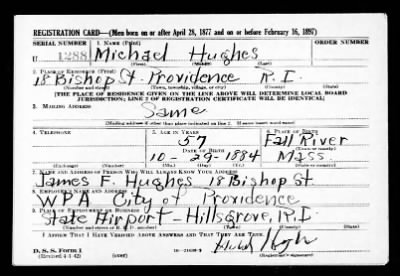 REGISTRATION CARD—(Men born on or after April 28, 1877 and on or before February 16, 1897)
SERIAL NUMBER 1. NAME (Print) ORDER NUMBER
U 1288 Michael Hughes
(First) (Middle) (Last)
2. PLACE OF RESIDENCE (Print)
18 Bishop St. Providence R.I.
(Number and street) (Town, township, village, or city) (County) (State)
[THE PLACE OF RESIDENCE GIVEN ON THE LINE ABOVE WILL DETERMINE LOCAL BOARD
JURISDICTION; LINE 2 OF REGISTRATION CERTIFICATE WILL BE IDENTICAL]
3. MAILING ADDRESS
Same
[Mailing address if other than place indicated on line 2. If same insert word same]
4. TELEPHONE 5. AGE IN YEARS 6. PLACE OF BIRTH
57 Fall River
DATE OF BIRTH (Town or county)
10-29-1884 Mass.
(Exchange) (Number) (Mo.) (Day) (Yr.) (State or country)
7. NAME AND ADDRESS OF PERSON WHO WILL ALWAYS KNOW YOUR ADDRESS
James F. Hughes 18 Bishop St.
8. EMPLOYER'S NAME AND ADDRESS
WPA City of Providence
9. PLACE OF EMPLOYMENT OR BUSINESS
State Airport-Hillsgrove, R.I.
(Number and street or R. F. D. number) (Town) (County) (State)
I AFFIRM THAT I HAVE VERIFIED ABOVE ANSWERS AND THAT THEY ARE TRUE.
D. S. S. Form 1
(Revised 4-1-42) (over) (Registrant's signature)